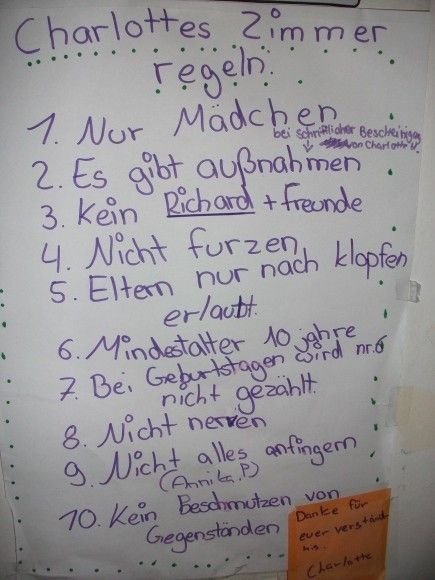 Charlottes Zimmer
regeln:
1. Nur Mädchen
bei schriftlicher Bescheinigung
von Charlotte
2. Es gibt außnahmen
3. Kein Richard + freunde
4. Nicht furzen
5. Eltern nur nach klopfen
erlaubt.
6. Mindestalter 10 jahre
7. Bei Geburtstagen wird nr.6
nicht gezählt.
8. Nicht nerven
9. Nicht alles anfingern
(Annika.P)
10. Kein Beschmutzen von
Gegenständen
Danke für
euer verständ-
nis.
Charlotte